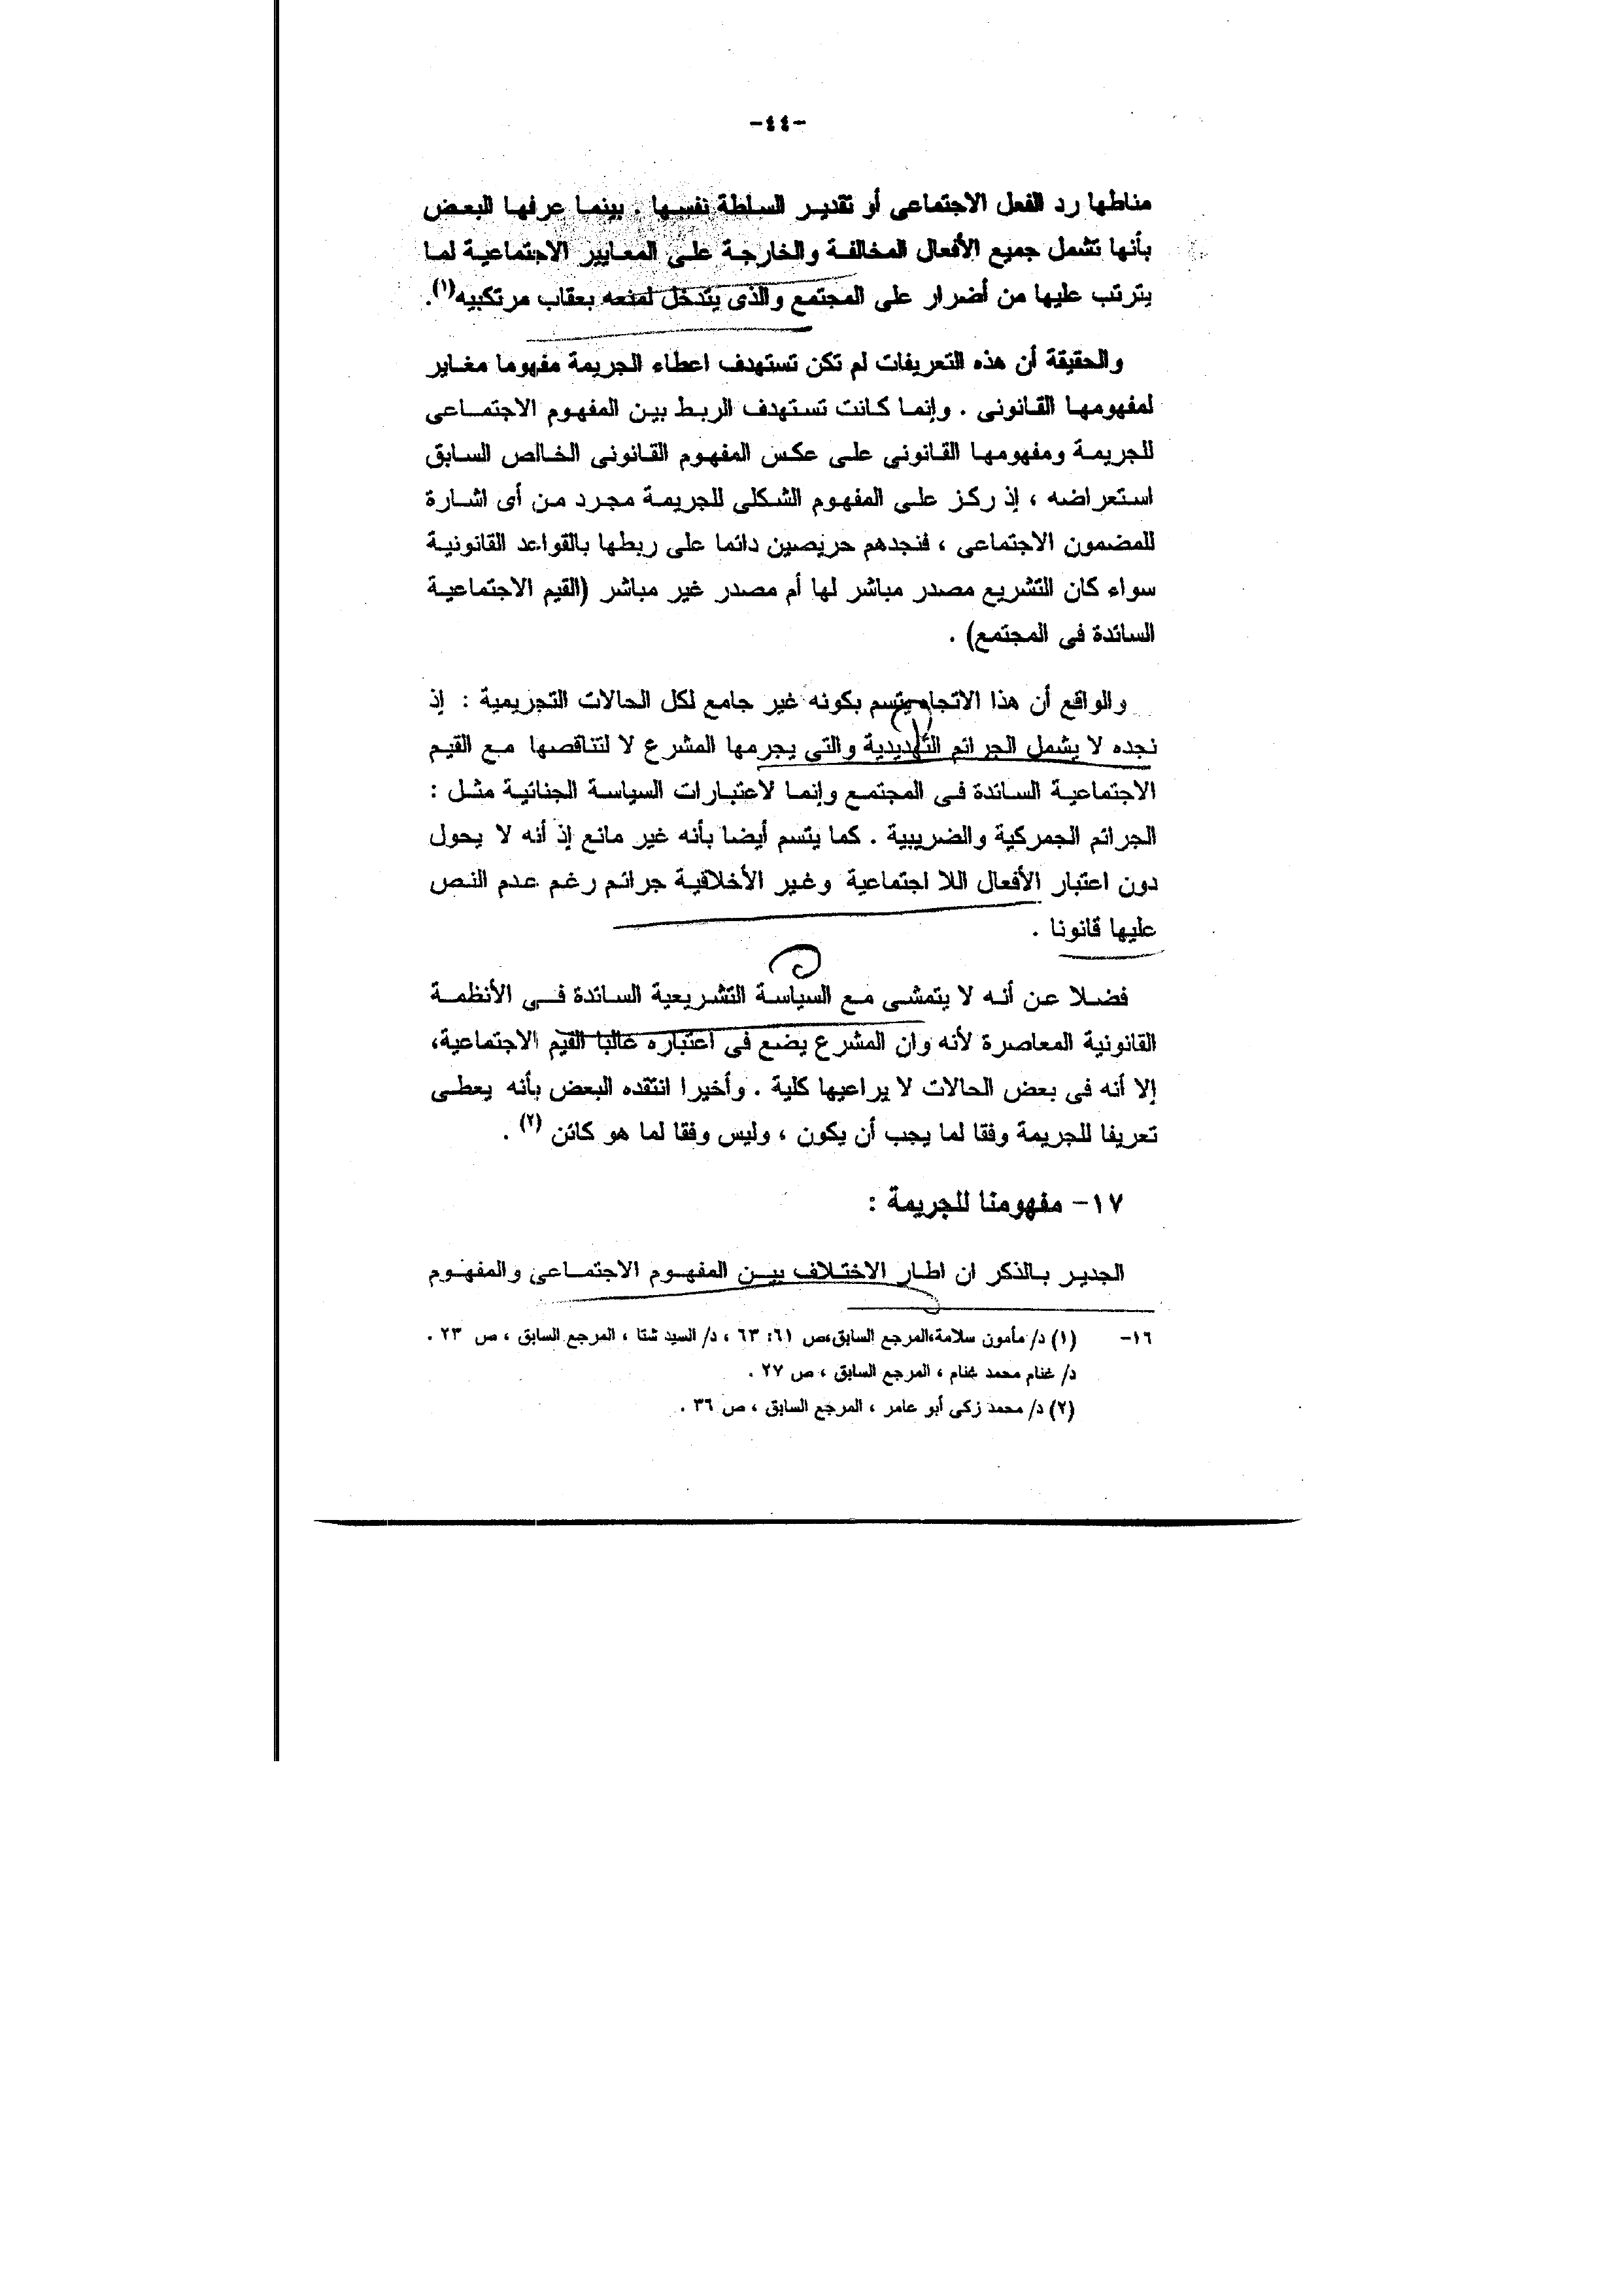 -٤٤-
مناطها رد الفعل الاجتماعى أو تقدير السلطة نفسها . بينما عرفها البعض
بأنها تشمل جميع الأفعال المخالفة والخارجة على المعايير الاجتماعية لما
يترتب عليها من أضرار على المجتمع والذى يتدخل لمنعه بعقاب مرتكبيه(١).
والحقيقة أن هذه التعريفات لم تكن تستهدف اعطاء الجريمة مفهوما مغاير
لمفهومها القانونى . وإنما كانت تستهدف الربط بين المفهوم الاجتماعى
للجريمة ومفهومها القانونى على عكس المفهوم القانونى الخالص السابق
استعراضه ، إذ ركز على المفهوم الشكلى للجريمة مجرد من أى اشارة
للمضمون الاجتماعى ، فنجدهم حريصين دائما على ربطها بالقواعد القانونية
سواء كان التشريع مصدر مباشر لها أم مصدر غير مباشر (القيم الاجتماعية
السائدة فى المجتمع) .
والواقع أن هذا الاتجاه يتسم بكونه غير جامع لكل الحالات التجريمية : إذ
نجده لا يشمل الجرائم التهديدية والتى يجرمها المشرع لا لتناقصها مع القيم
الاجتماعية السائدة فى المجتمع وإنما لاعتبارات السياسة الجنائية مثل :
الجرائم الجمركية والضريبية . كما يتسم أيضا بأنه غير مانع إذ أنه لا يحول
دون اعتبار الأفعال اللا اجتماعية وغير الأخلاقية جرائم رغم عدم النص
عليها قانونا .
فضلا عن أنه لا يتمشى مع السياسة التشريعية السائدة فى الأنظمة
القانونية المعاصرة لأنه وان المشرع يضع فى اعتباره غالبا القيم الاجتماعية،
إلا أنه فى بعض الحالات لا يراعيها كلية . وأخيرا انتقده البعض بأنه يعطى
تعريفا للجريمة وفقا لما يجب أن يكون ، وليس وفقا لما هو كائن (٢) .
١٧- مفهومنا للجريمة :
الجدير بالذكر ان اطار الاختلاف بين المفهوم الاجتماعى والمفهوم
١٦- (١) د/ مأمون سلامة،المرجع السابق،ص ٦١: ٦٣ ، د/ السيد شتا ، المرجع السابق ، ص ٢٣ .
د/ غنام محمد غنام ، المرجع السابق ، ص ٢٧ .
(٢) د/ محمد زكى أبو عامر ، المرجع السابق ، ص ٣٦ .